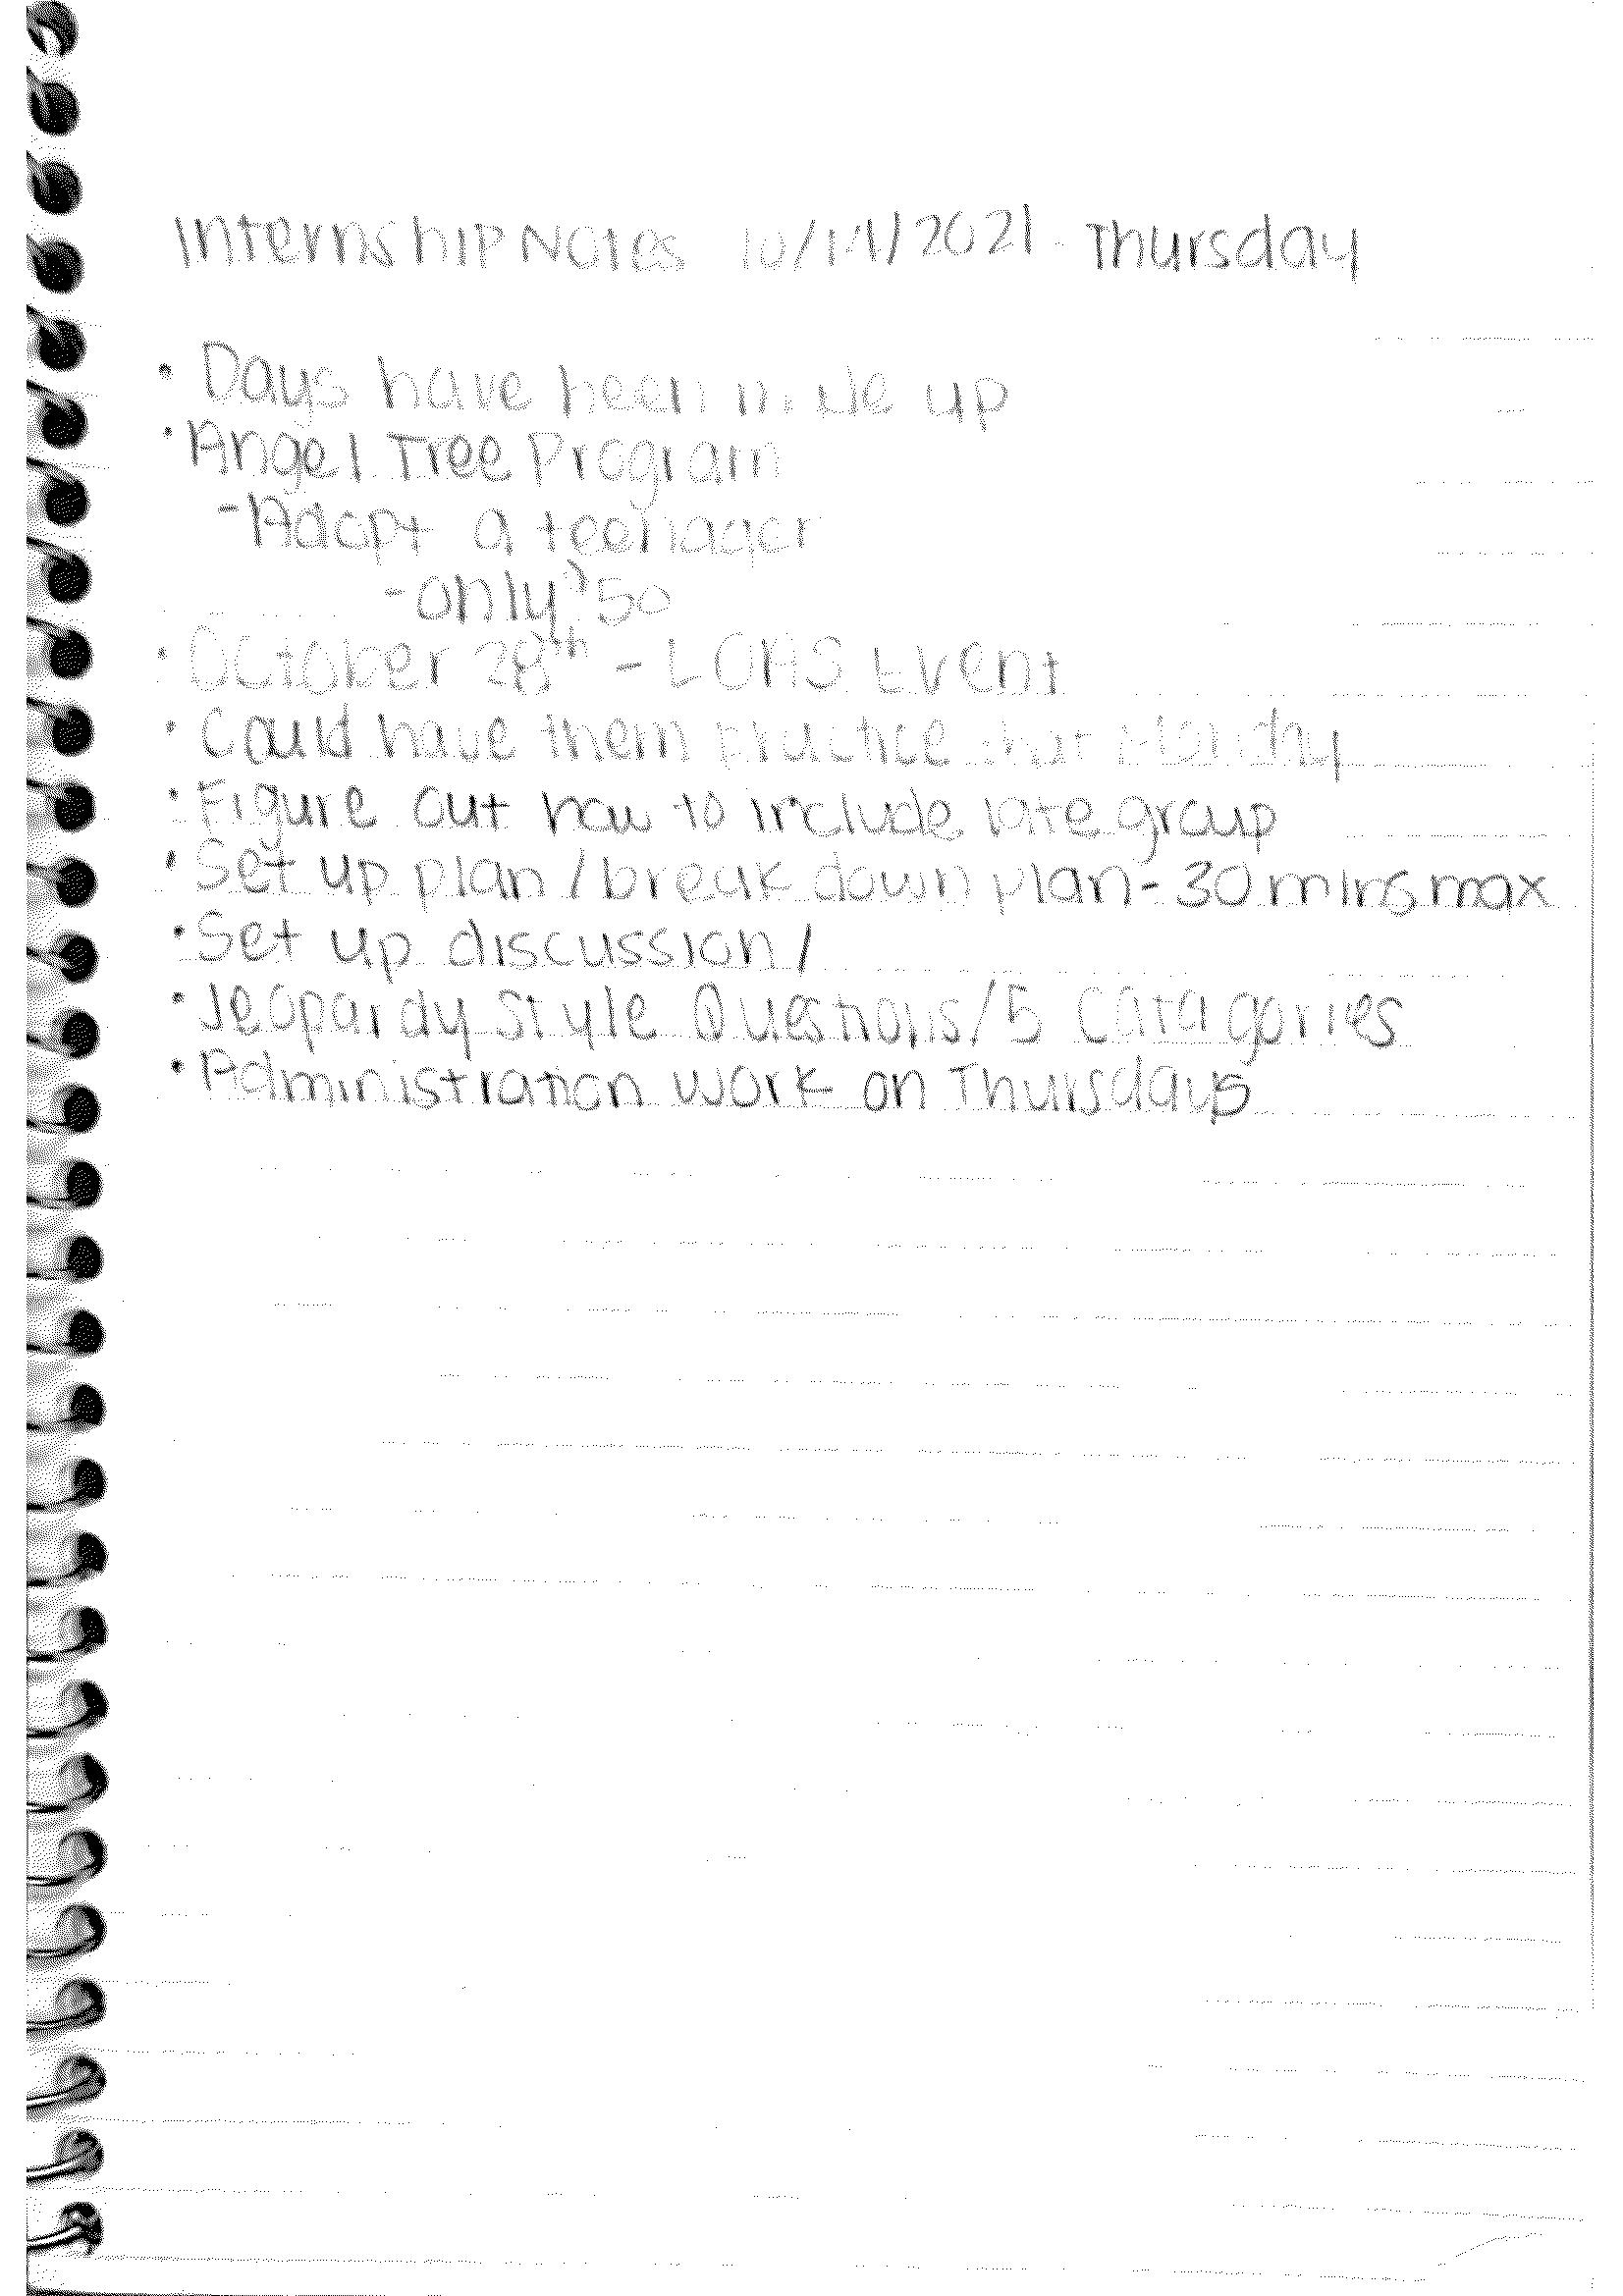 Internship Notes 10/14/2021 - Thursday
• Days have been made up
• Angel Tree Program
- Adopt a teenager
- only $50
• October 28th - LOHS Event
• Could have them practice that Monday
• Figure out how to include late group
• Set up plan / break down plan - 30 mins max
• Set up discussion /
• Jeopardy Style Questions / 5 Catagories
• Administration work on Thursdays